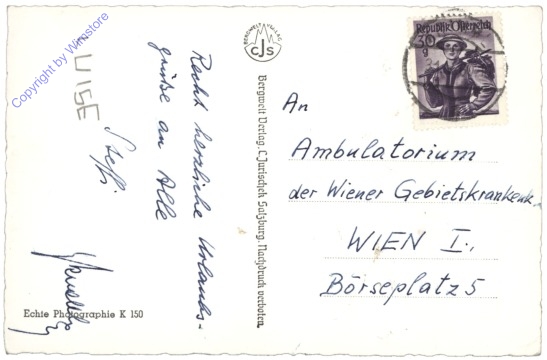 Copyright by Wimstore
Recht herzliche Urlaubs-
grüße an Alle
Steffi
BERGWELT VERLAG
CJS
Bergwelt Verlag, C. Jurischek Salzburg. Nachdruck verboten.
Republik Österreich
30g
An
Ambulatorium
der Wiener Gebietskrankenk.
WIEN I.,
Börseplatz 5
Echte Photographie K 150